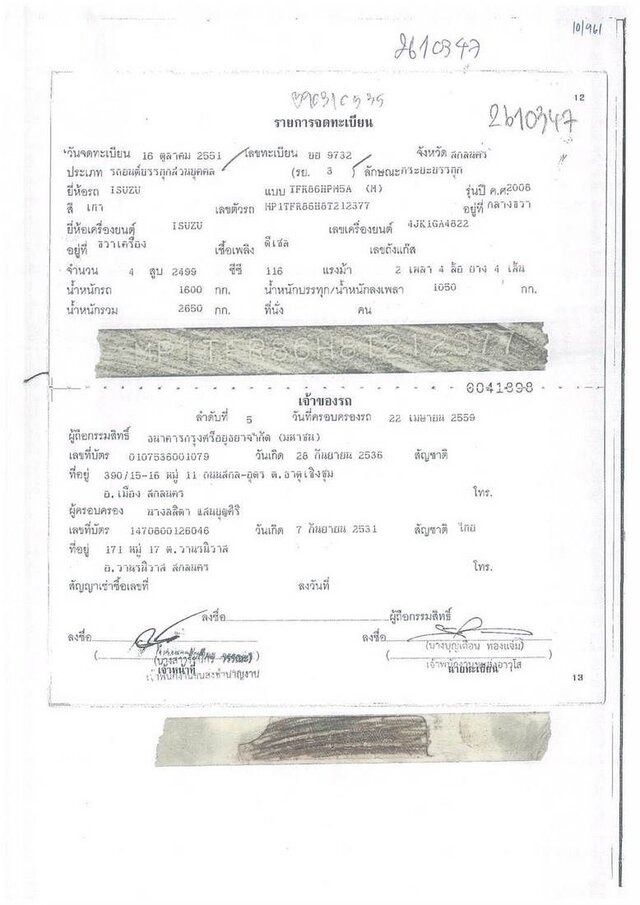 10/961
2610347
12
รายการจดทะเบียน
2610347
วันจดทะเบียน 16 ตุลาคม 2551 เลขทะเบียน ยอ 9732 จังหวัด สกลนคร
ประเภท รถยนต์บรรทุกส่วนบุคคล (รย. 3 ) ลักษณะ กระบะบรรทุก
ยี่ห้อรถ ISUZU แบบ TFR86HPM5A (M) รุ่นปี ค.ศ. 2008
สี เทา เลขตัวรถ MP1TFR86H8T212377 อยู่ที่ กลางขวา
ยี่ห้อเครื่องยนต์ ISUZU เลขเครื่องยนต์ 4JK1GA4822
อยู่ที่ ขวาเครื่อง เชื้อเพลิง ดีเซล เลขถังแก๊ส
จำนวน 4 สูบ 2499 ซีซี 116 แรงม้า 2 เพลา 4 ล้อ ยาง 4 เส้น
น้ำหนักรถ 1600 กก. น้ำหนักบรรทุก/น้ำหนักลงเพลา 1050 กก.
น้ำหนักรวม 2650 กก. ที่นั่ง คน
MP1TFR86H8T212377
0041898
เจ้าของรถ
ลำดับที่ 5 วันที่ครอบครองรถ 22 เมษายน 2559
ผู้ถือกรรมสิทธิ์ ธนาคารกรุงศรีอยุธยาจำกัด (มหาชน)
เลขที่บัตร 0107536001079 วันเกิด 28 กันยายน 2536 สัญชาติ
ที่อยู่ 390/15-16 หมู่ 11 ถนนสกล-อุดร ต.ธาตุเชิงชุม
อ.เมือง สกลนคร โทร.
ผู้ครอบครอง นางลลิตา แสนบุญศิริ
เลขที่บัตร 1470800126046 วันเกิด 7 กันยายน 2531 สัญชาติ ไทย
ที่อยู่ 171 หมู่ 17 ต.วานรนิวาส
อ.วานรนิวาส สกลนคร โทร.
สัญญาเช่าซื้อเลขที่ ลงวันที่
ลงชื่อ ผู้ถือกรรมสิทธิ์
ลงชื่อ ลงชื่อ
(นางบุญเตือน ทองแจ่ม)
เจ้าหน้าที่ นายทะเบียน
13